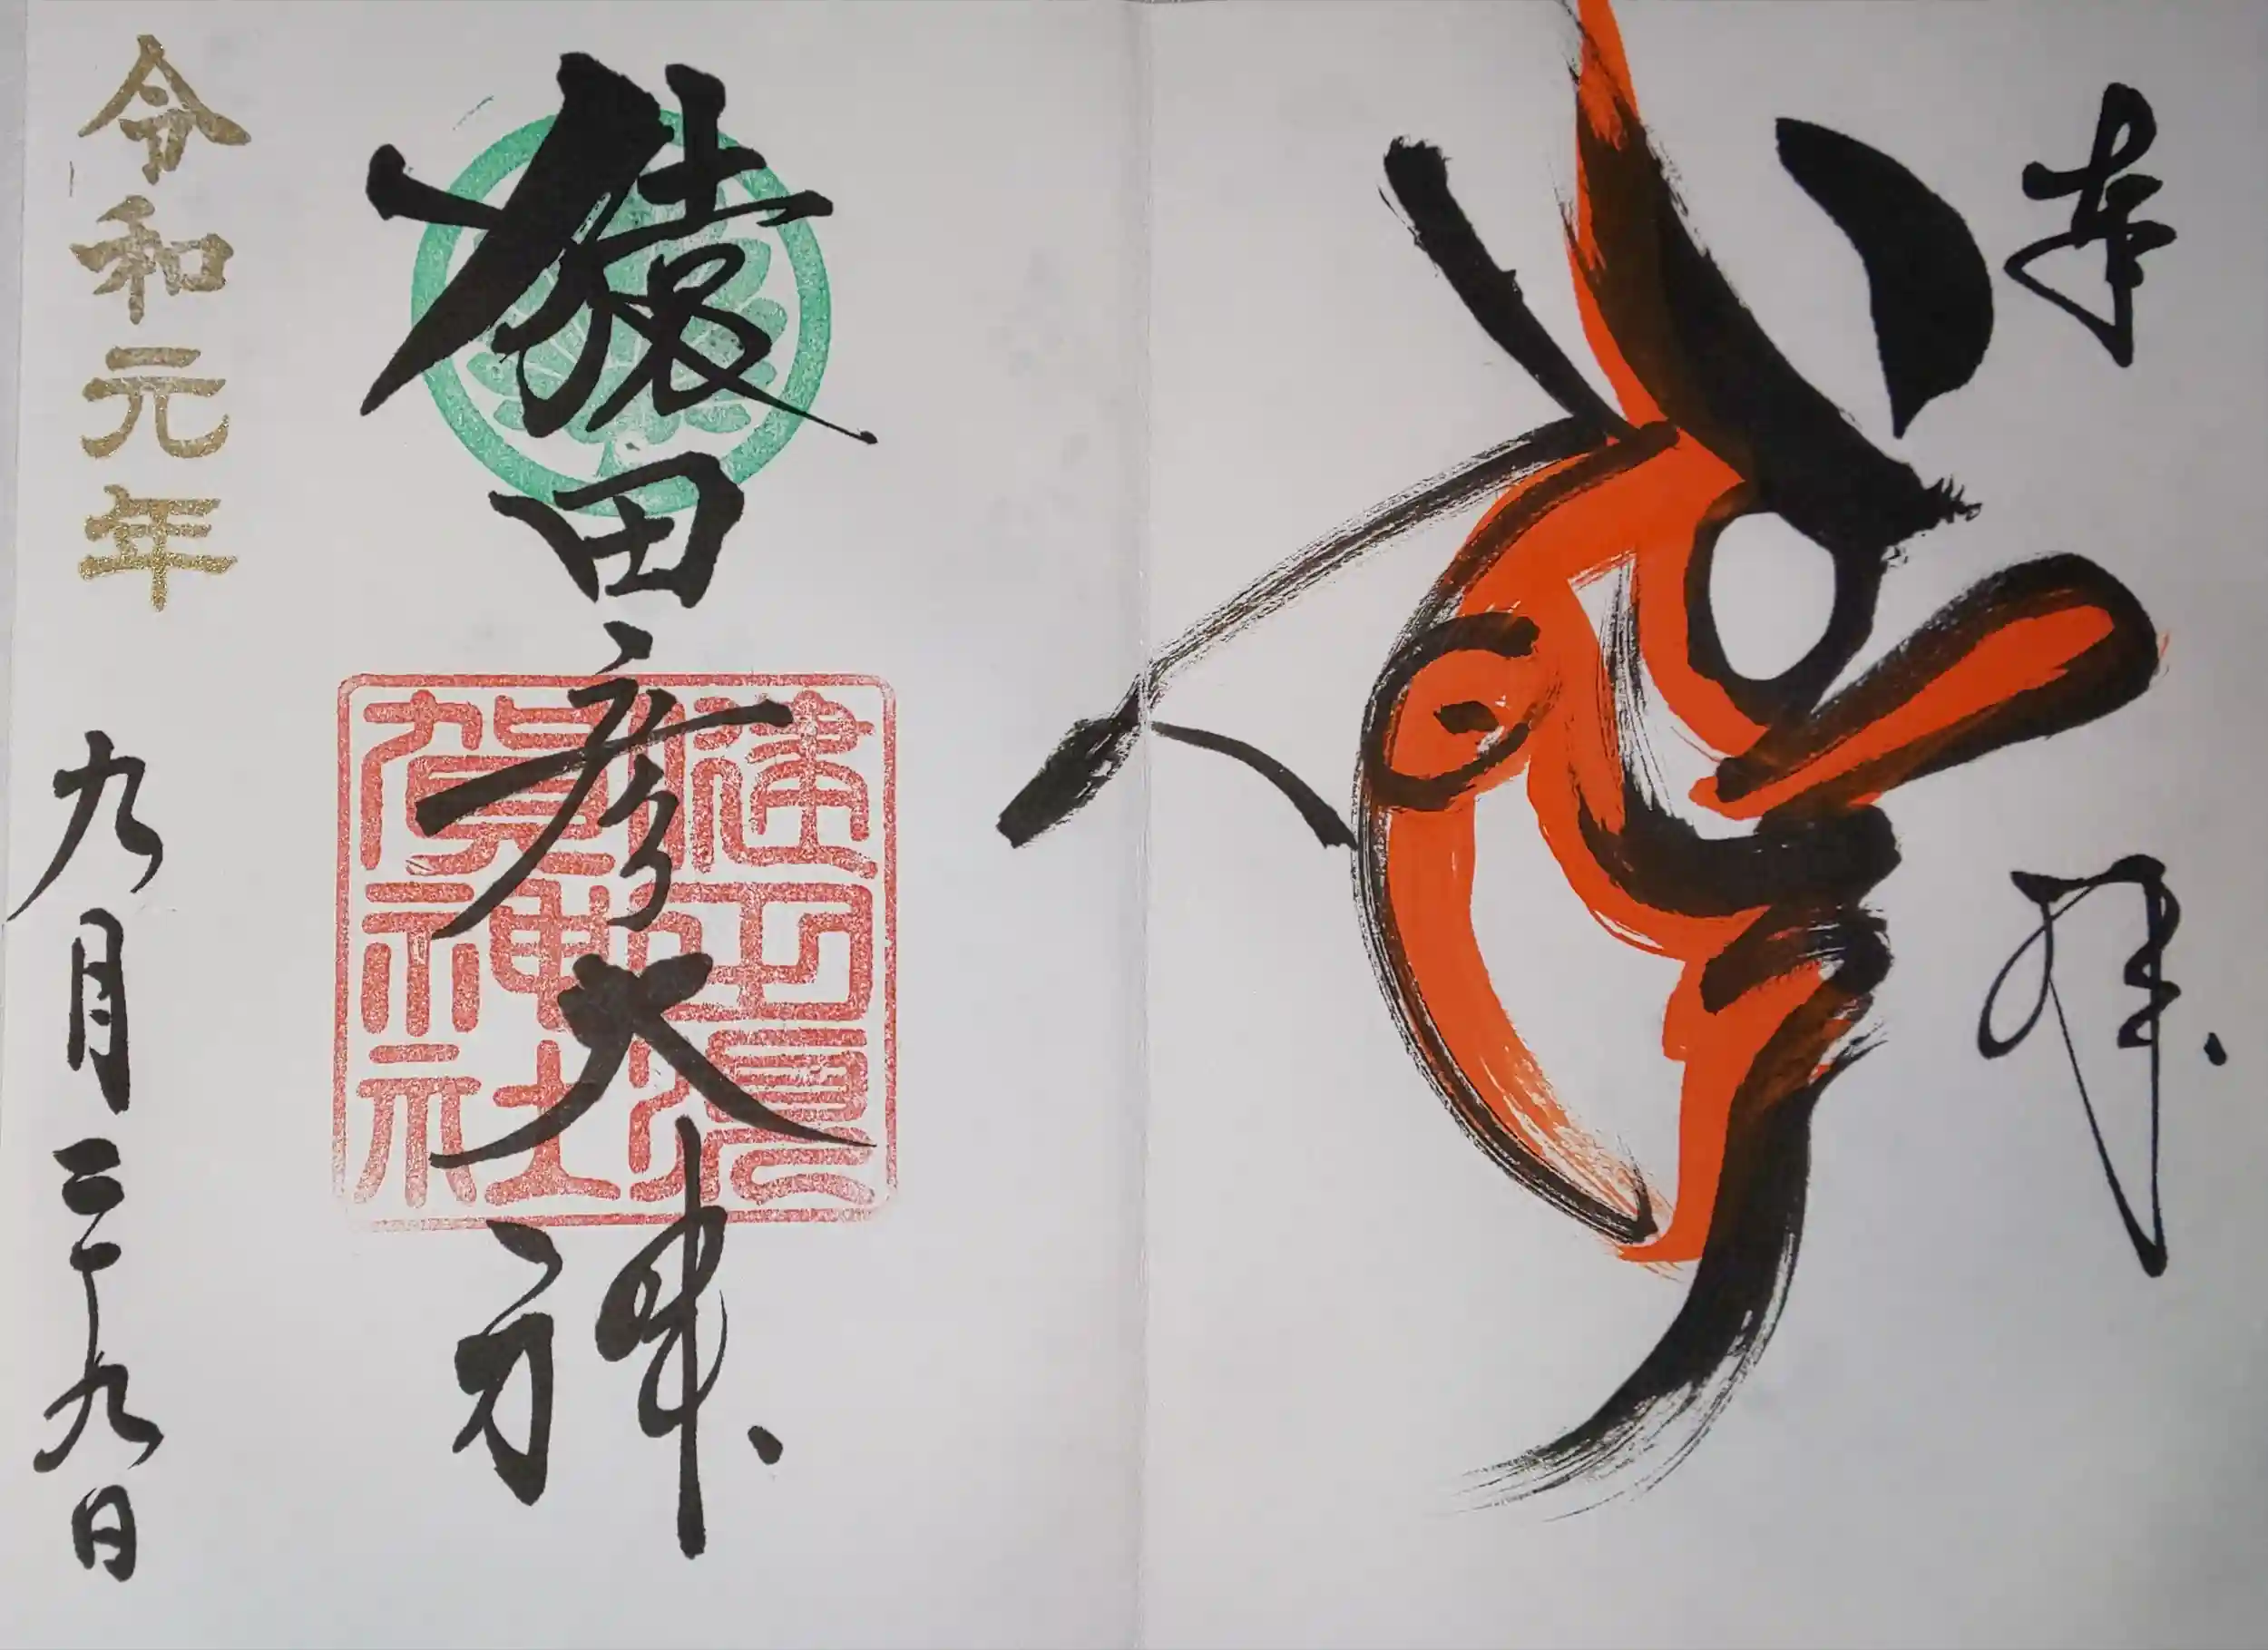 奉拝
猿田彦大神
健田須
賀神社
令和元年九月二十九日